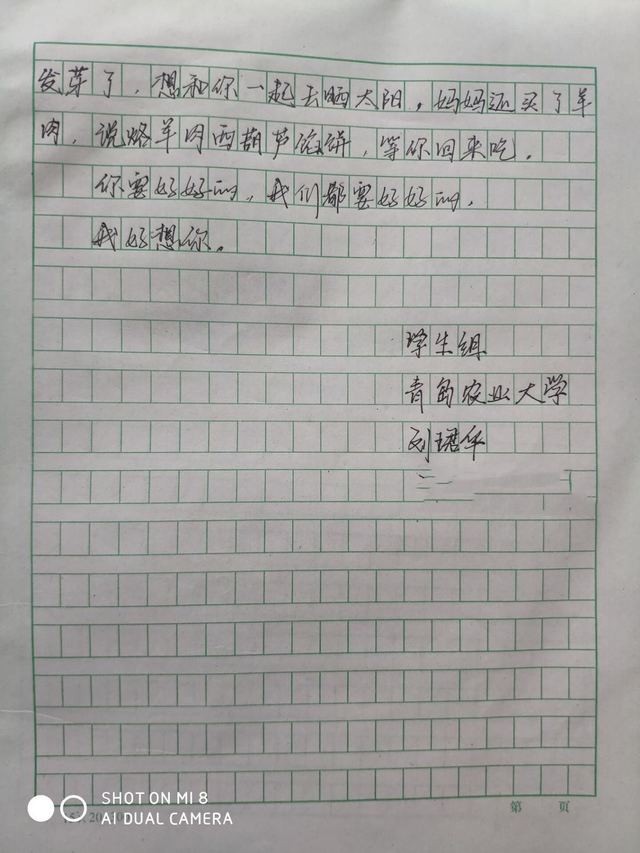 发芽了，想和你一起去晒太阳，妈妈还买了羊
肉，说烙羊肉西葫芦馅饼，等你回来吃。
你要好好的，我们都要好好的，
我好想你。
学生组
青岛农业大学
刘珺华
第 页
SHOT ON MI 8
AI DUAL CAMERA